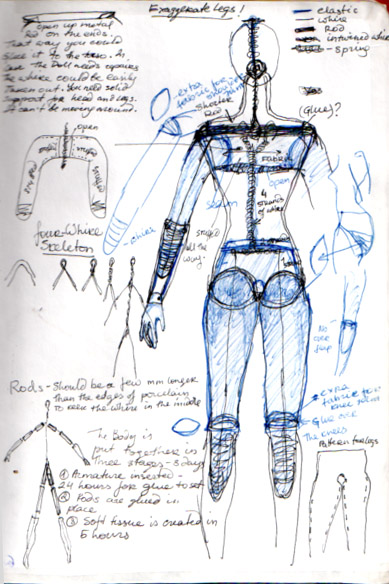 Exaggerate Legs!
Open up metal
Rod on the ends.
That way you could
Glue it to the torso. In
case the Doll needs repairs
The whire could be easily
Taken out. You need solid
Support for head and legs.
It can't be moving around.
open
elastic
whire
Rod
intwined whire
- Spring
+ extra
fabric for
Shorter
Rod
(Glue)?
Fabric
open
4
strands
of whire
stuffed
all the
way.
Four-Whire
Skeleton
Rods - Should be a few mm longer
Than the edges of porcelain
to keep the whire in the middle
+ extra
fabric for
knee joint
Glue
The knees
Pattern for legs
The Body is
put together in
Three stages - 3 days
① Armature inserted -
24 hours for glue to set
② Rods are glued in
place
③ Soft tissue is created in
5 hours